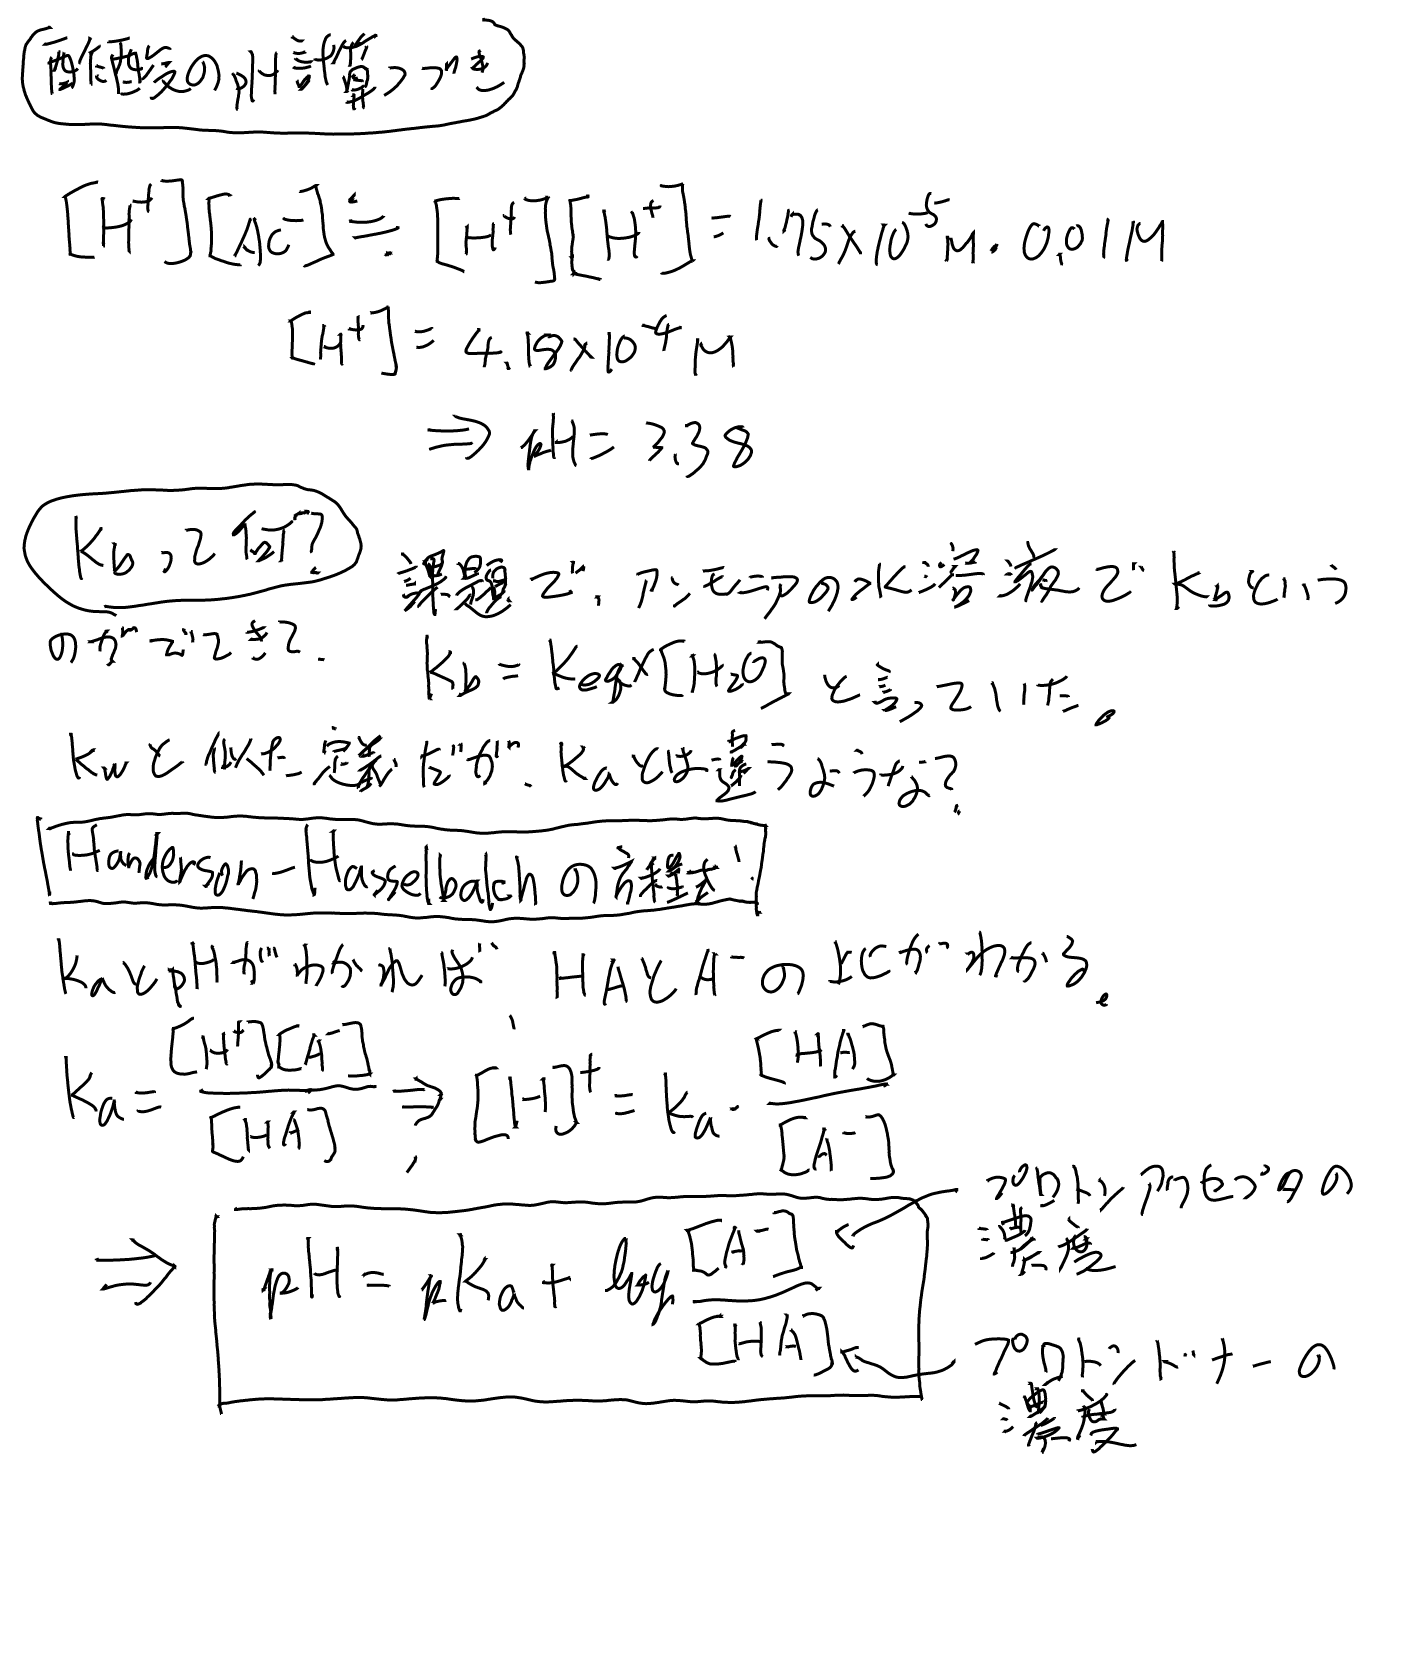 酢酸のpH計算つづき
[H⁺][AC⁻]≒[H⁺][H⁺]=1.75×10⁻⁵M・0.01M
[H⁺]=4.18×10⁻⁴M
⇒ pH=3.38
Kbって何?
課題で、アンモニアの水溶液でKbという
のがでてきて、
Kb=Keq×[H₂O]と言っていた。
Kwと似た定義だが、Kaとは違うような?
Handerson-Hasselbalchの方程式
KaとpHがわかれば HAとA⁻の比がわかる。
Ka=[H⁺][A⁻]/[HA] ⇒ [H]⁺=Ka・[HA]/[A⁻]
⇒ pH=pKa+log [A⁻]/[HA]
プロトンアクセプタの
濃度
プロトンドナーの
濃度